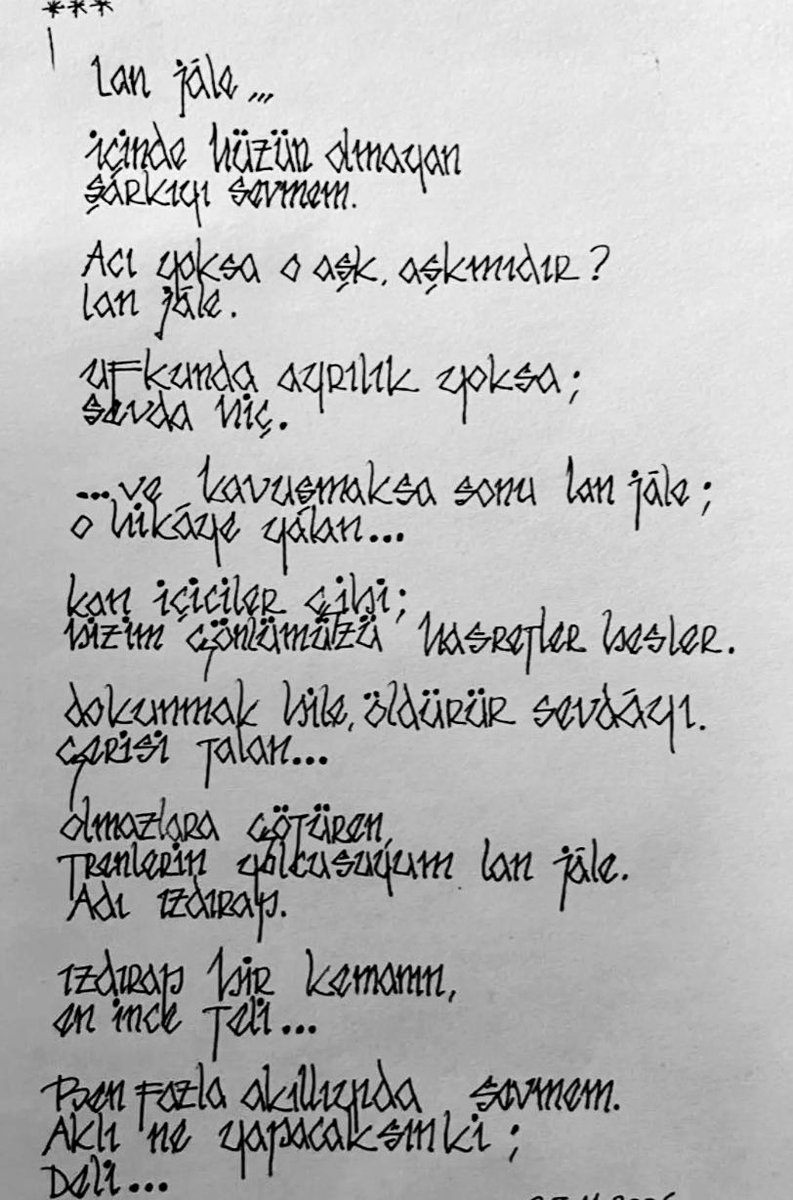 ***
lan jâle...
içinde hüzün olmayan
şârkıyı sevmem.
Acı yoksa o aşk, aşkmıdır?
lan jâle.
ufkunda ayrılık yoksa;
sevda hiç.
...ve kavuşmaksa sonu lan jâle;
o hikâye yâlan...
kan içiciler gibi;
bizim gönlümüzü hasretler besler.
dokunmak bile, öldürür sevdâyı.
gerisi talan...
olmazlara götüren,
trenlerin yolcusuyum lan jâle.
Adı ızdırap.
ızdırap bir kemanın,
en ince teli...
Ben fazla akıllıyıda sevmem.
Aklı ne yapacaksınki;
Deli...